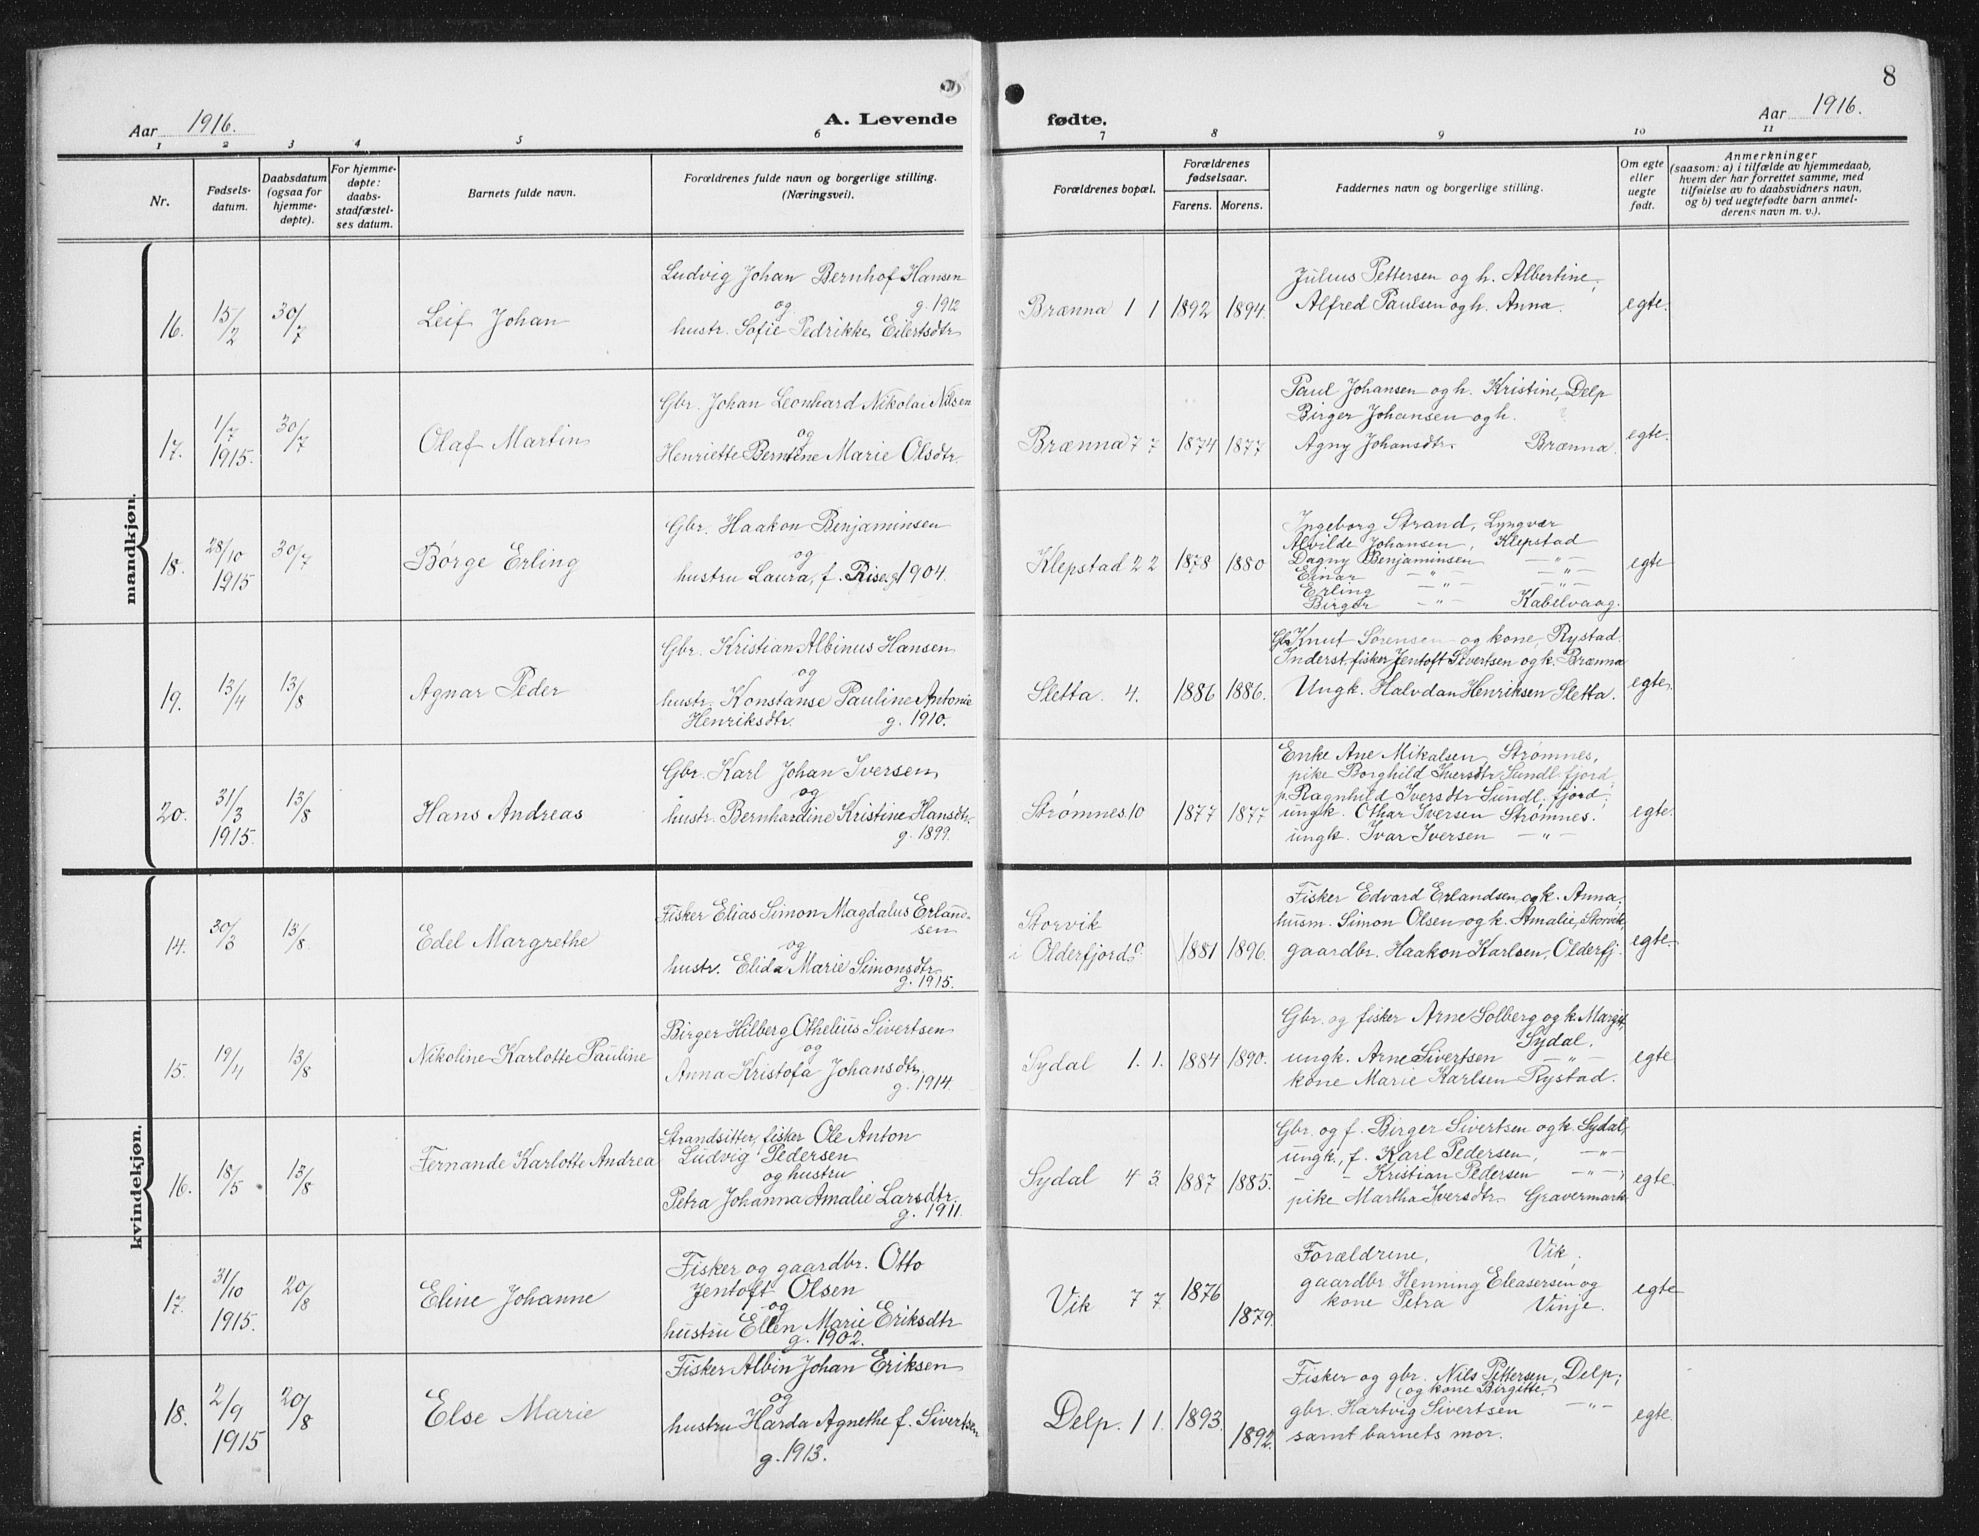 8
Aar 1916.
A. Levende
fødte.
Aar 1916.
1 2 3 4 5 6 7 8 9 10 11
Nr.
Fødsels-
datum.
Daabsdatum
(ogsaa for
hjemme-
døpte).
For hjemme-
døpte:
daabs-
stadfæstel-
ses datum.
Barnets fulde navn.
Forældrenes fulde navn og borgerlige stilling.
(Næringsvei).
Forældrenes bopæl.
Forældrenes
fødselsaar.
Farens. Morens.
Faddernes navn og borgerlige stilling.
Om egte
eller
uegte
født.
Anmerkninger
(saasom: a) i tilfælde av hjemmedaab,
hvem der har forrettet samme, med
tilføielse av to daabsvidners navn,
og b) ved uegtefødte barn anmel-
derens navn m. v.).
mandkjøn.
16. 15/2 30/7
Leif Johan
Ludvig Johan Bernhof Hansen
og g. 1912
hustr. Sofie Pedrikke Eilertsdtr
Brænna 1 1 1892 1894.
Julius Pettersen og h. Albertine,
Alfred Paulsen og h. Anna.
egte.
17. 1/7 1915. 30/7
Olaf Martin
Gbr. Johan Leonhard Nikolai Nilsen
og
Henriette Berntine Marie Olsdtr.
Brænna 7 7 1874 1877
Paul Johansen og h. Kristine, Delp
Birger Johansen og h.
Agny Johansdtr. Brænna.
egte.
18. 28/10 1915 30/7
Børge Erling
Gbr. Haakon Benjaminsen
og
hustru Laura, f. Rise g. 1904.
Klepstad 2 2 1878 1880
Ingeborg Strand, Lyngvær
Alvilde Johansen, Klepstad
Dagny Benjaminsen —"—
Einar —"— —"—
Erling —"— —"—
Birger —"— Kabelvaag.
egte
19. 13/4 13/8
Agnar Peder
Gbr. Kristian Albinus Hansen
og
hustr. Konstanse Pauline Antonie
Henriksdtr. g. 1910.
Sletta. 4. 1886 1886.
Gbr Knut Sørensen og kone, Rystad.
Inderst, fisker Jentoft Sivertsen og k. Brænna
Ungk. Halvdan Henriksen Sletta.
egte.
20. 31/3 1915. 13/8
Hans Andreas
Gbr. Karl Johan Iversen
og
hustr. Bernhardine Kristine Hansdtr.
g. 1899.
Strømnes 10 1877 1877
Enke Ane Mikalsen Strømnes,
pike Borghild Iversdtr Sundl. fjord,
p. Ragnhild Iversdtr Sundl. fjord;
ungk. Othar Iversen Strømnes.
ungk. Ivar Iversen —"—
egte.
kvindekjøn.
14. 30/3 13/8.
Edel Margrethe
Fisker Elias Simon Magdalus Erland-
sen
og
hustr. Elida Marie Simonsdtr
g. 1915.
Storvik
i Olderfjord 1881 1896.
Fisker Edvard Erlandsen og k. Anna,
husm. Simon Olsen og k. Amalie, Storvik,
gaardbr. Haakon Karlsen, Olderfj.
egte.
15. 19/4 13/8
Nikoline Karlotte Pauline
Birger Hilberg Othelius Sivertsen
og
Anna Kristofa Johansdtr
g. 1914.
Sydal 1. 1. 1884 1890.
Gbr. og fisker Arne Solberg og k. Margit,
Sydal.
ungk. Arne Sivertsen —"—
kone Marie Karlsen Rystad.
egte
16. 18/5 13/8
Fernande Karlotte Andrea
Strandsitter, fisker Ole Anton
Ludvig Pedersen
og hustru
Petra Johanna Amalie Larsdtr.
g. 1911.
Sydal 4 3 1887 1885.
Gbr. og f. Birger Sivertsen og k. Sydal,
ungk., f. Karl Pedersen, —"—
— - Kristian Pedersen —"—;
pike Martha Iversdtr. Gravermark
egte.
17. 31/10 1915. 20/8
Eline Johanne
Fisker og gaardbr. Otto
Jentoft Olsen
og
hustru Ellen Marie Eriksdtr
g. 1902.
Vik 7 7. 1876 1879.
Forældrene, Vik;
gaardbr Henning Eleasersen og
kone Petra Vinje.
egte
18. 2/9 1915 20/8
Else Marie
Fisker Albin Johan Eriksen
og
hustru Harda Agnethe f. Sivertsen
g. 1913.
Delp. 1 1. 1893 1892.
Fisker og gbr. Nils Pettersen, Delp;
(og kone Birgitte)
gbr. Hartvig Sivertsen —"—
samt barnets mor.
egte.